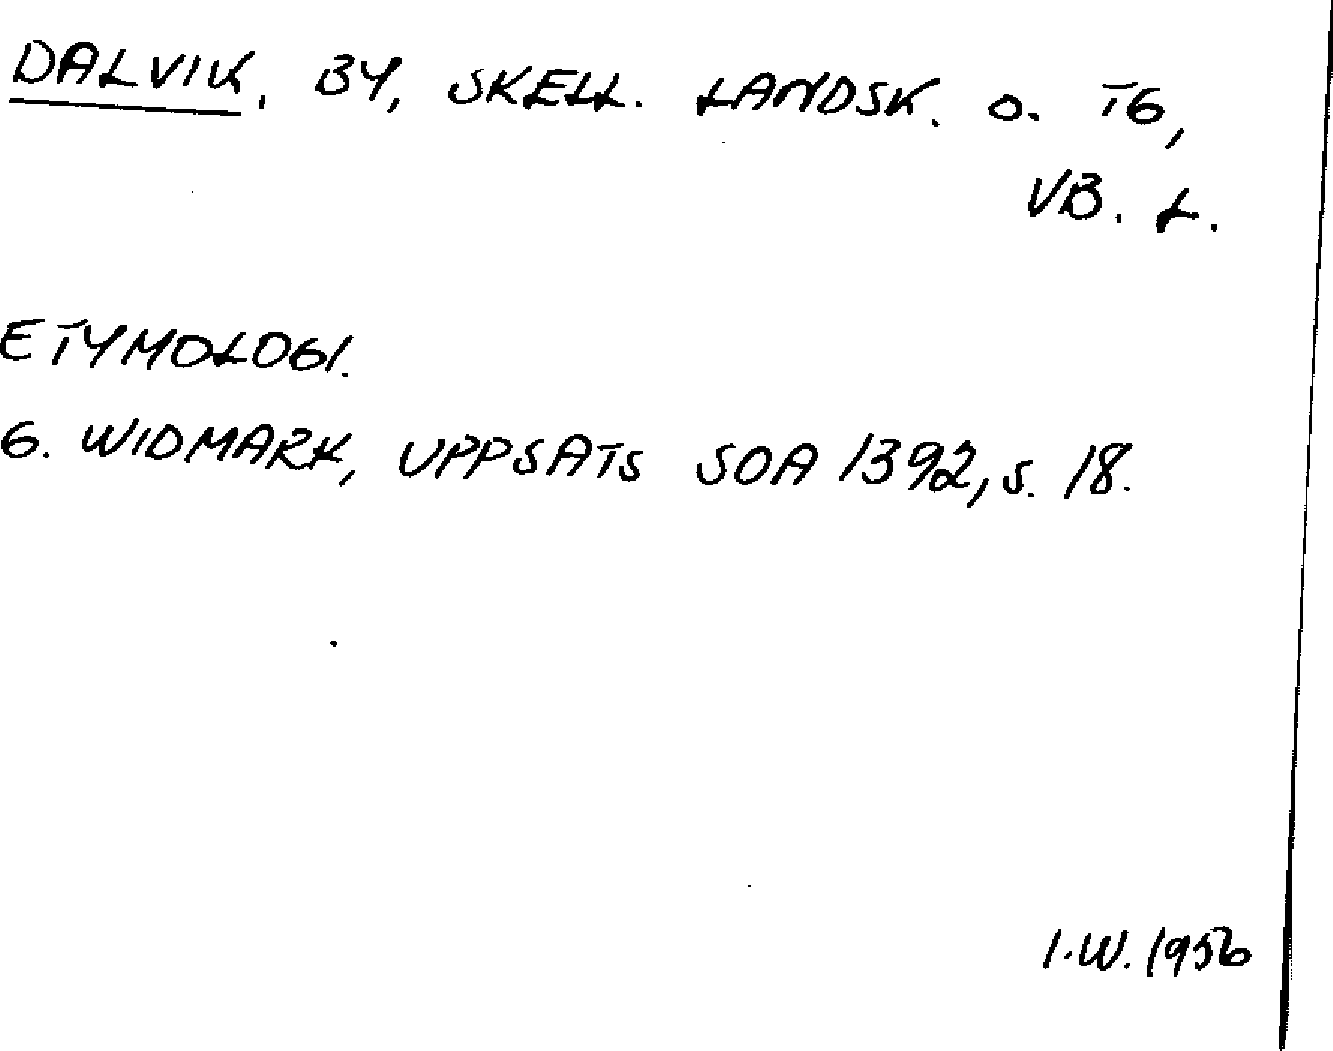 DALVIK, BY, SKELL. LANDSK. O. TG,
VB. L.
ETYMOLOGI.
G. WIDMARK, UPPSATS SOA 1392, S. 18.
I.W. 1956